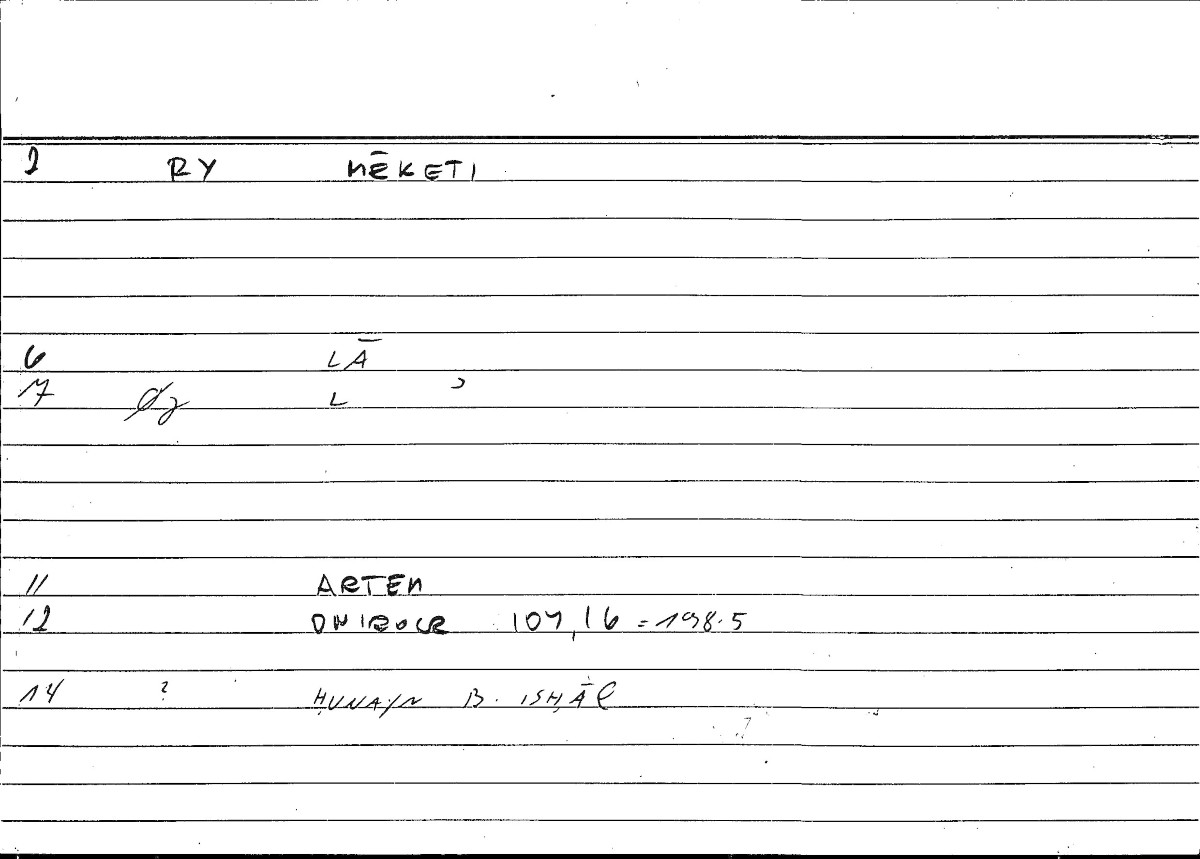 2 RY MĒKETI
6 LĀ
7 L
11 ARTEM
12 ONIROCR 107,16 = 198.5
14 ? ḤUNAYN B. ISḤĀQ